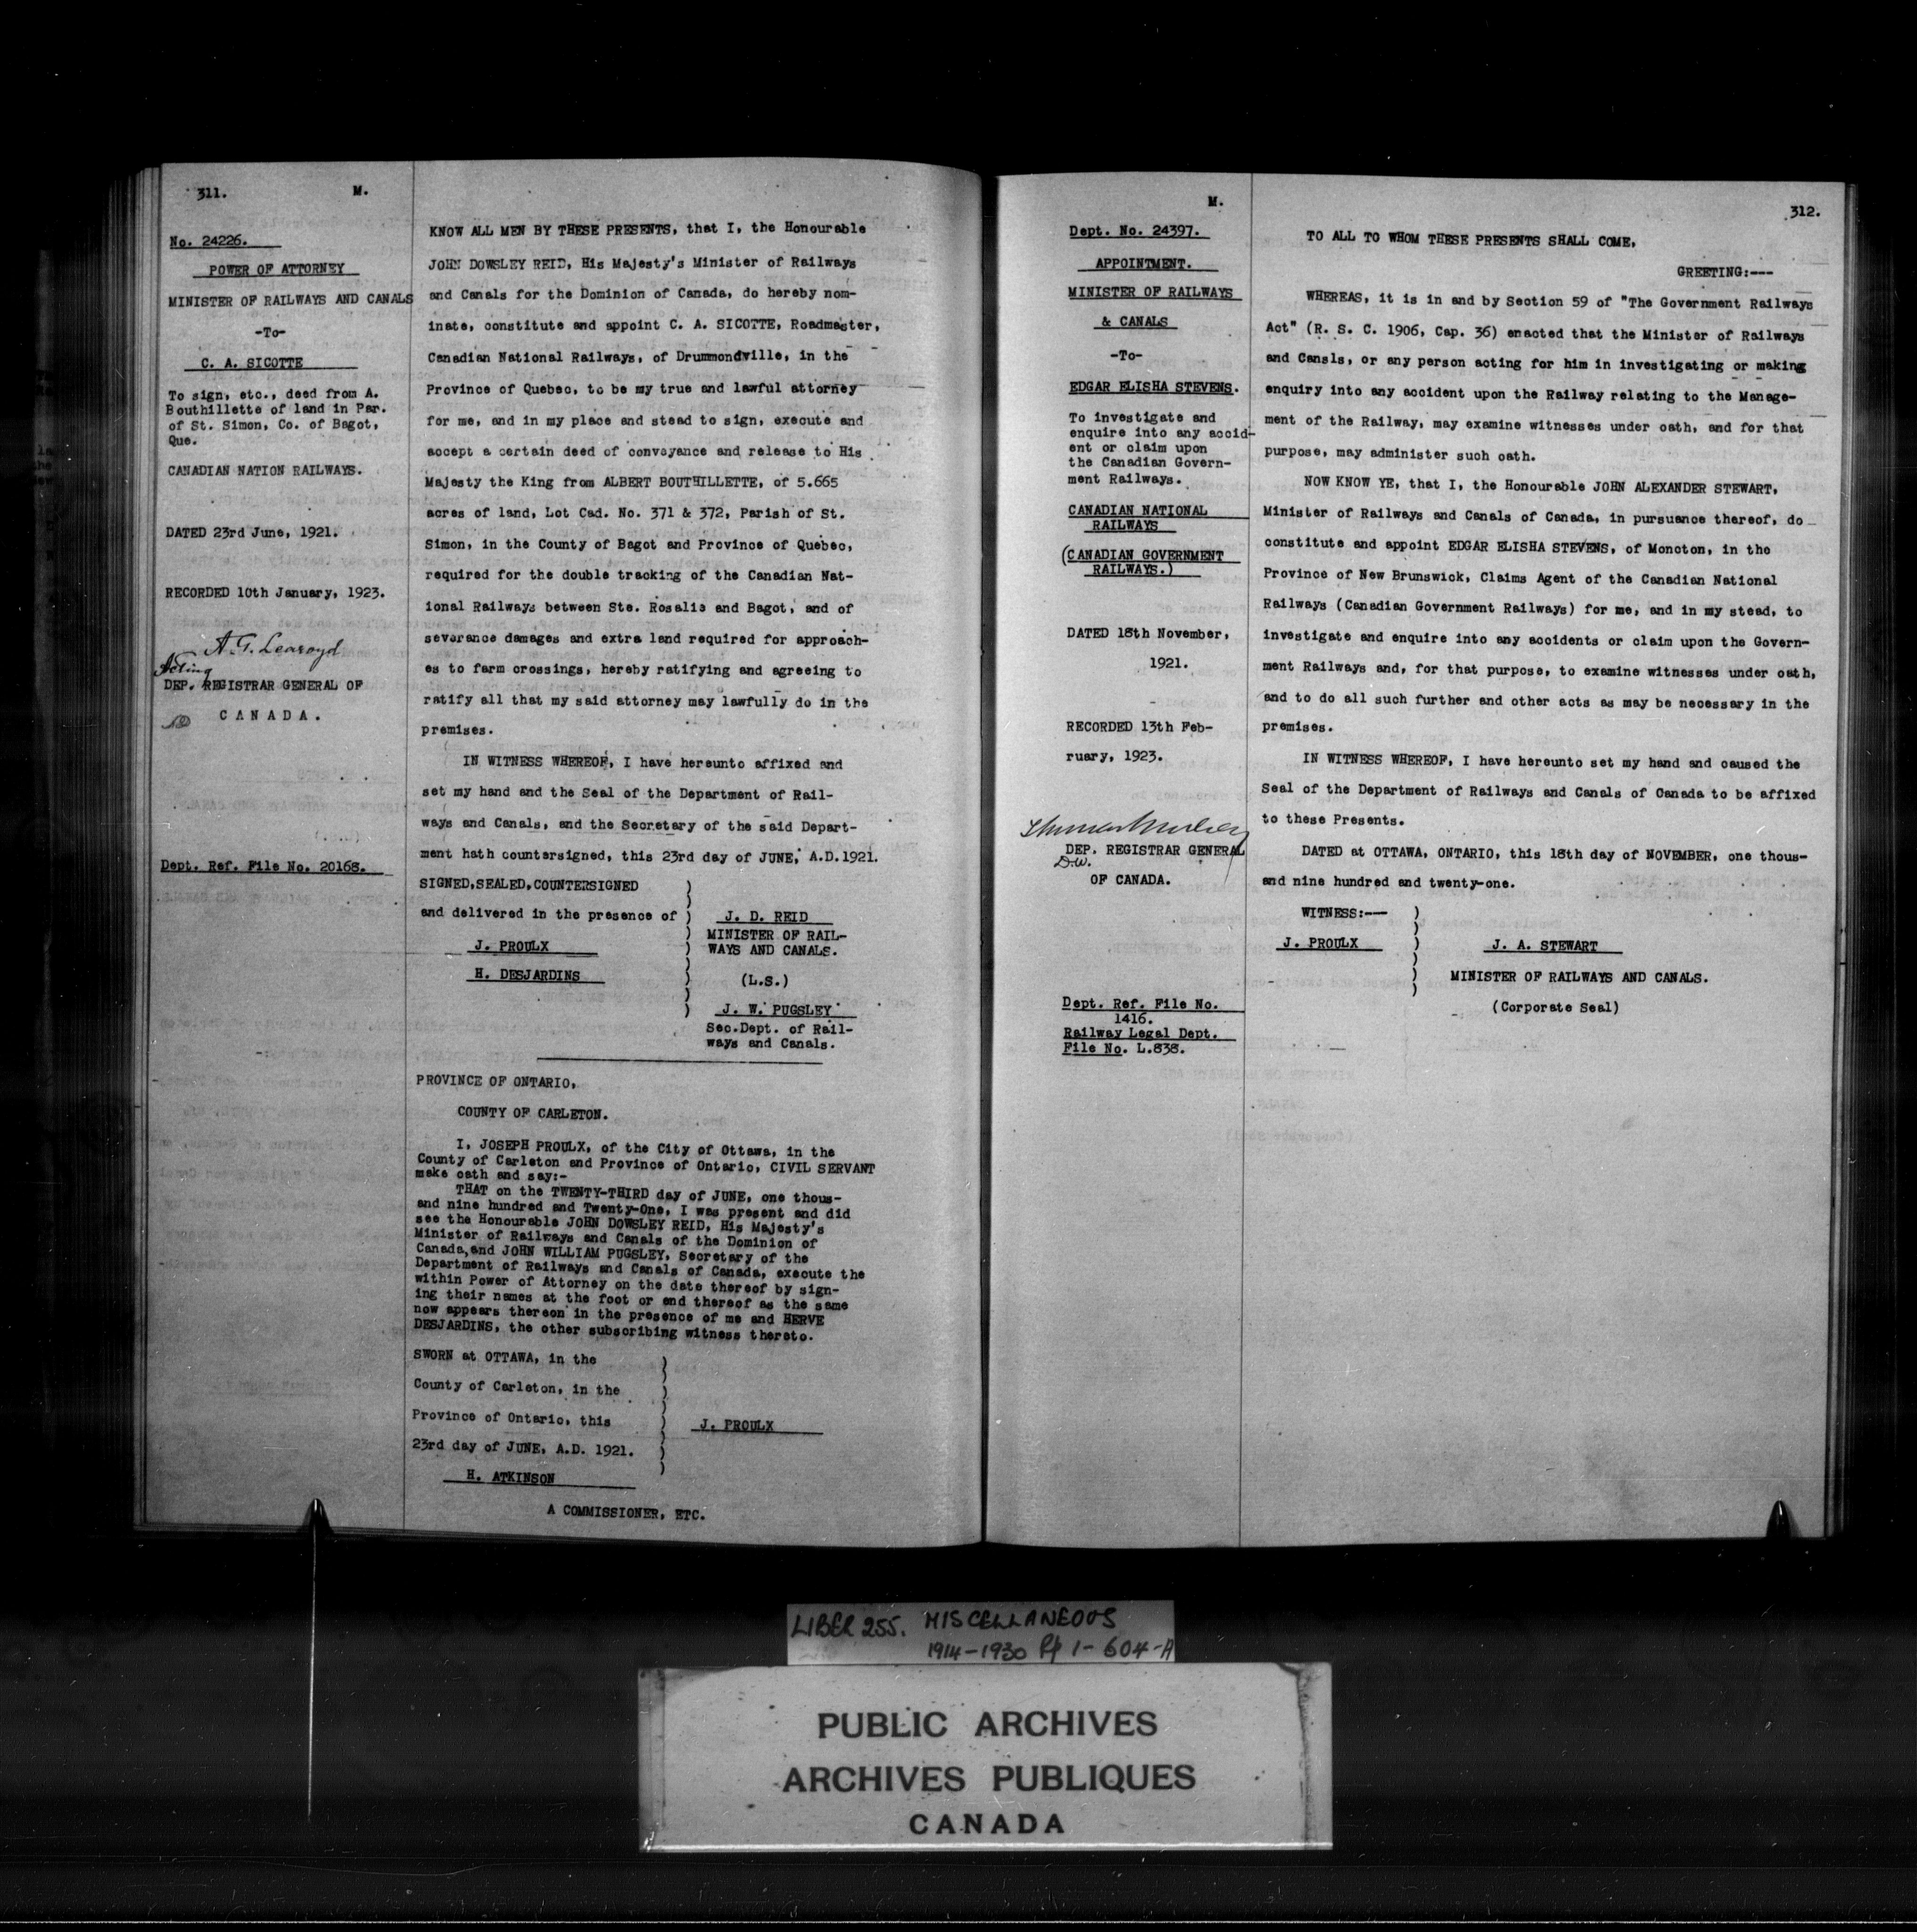 311.
M.
No. 24226.
POWER OF ATTORNEY
MINISTER OF RAILWAYS AND CANALS
-To-
C. A. SICOTTE
To sign, etc., deed from A.
Bouthillette of land in Par.
of St. Simon, Co. of Bagot,
Que.
CANADIAN NATION RAILWAYS.
DATED 23rd June, 1921.
RECORDED 10th January, 1923.
A. G. Learoyd
Acting
DEP. REGISTRAR GENERAL OF
CANADA.
Dept. Ref. File No. 20168.
KNOW ALL MEN BY THESE PRESENTS, that I, the Honourable
JOHN DOWSLEY REID, His Majesty's Minister of Railways
and Canals for the Dominion of Canada, do hereby nom-
inate, constitute and appoint C. A. SICOTTE, Roadmaster,
Canadian National Railways, of Drummondville, in the
Province of Quebec, to be my true and lawful attorney
for me, and in my place and stead to sign, execute and
accept a certain deed of conveyance and release to His
Majesty the King from ALBERT BOUTHILLETTE, of 5.665
acres of land, Lot Cad. No. 371 & 372, Parish of St.
Simon, in the County of Bagot and Province of Quebec,
required for the double tracking of the Canadian Nat-
ional Railways between Ste. Rosalie and Bagot, and of
severance damages and extra land required for approach-
es to farm crossings, hereby ratifying and agreeing to
ratify all that my said attorney may lawfully do in the
premises.
IN WITNESS WHEREOF, I have hereunto affixed and
set my hand and the Seal of the Department of Rail-
ways and Canals, and the Secretary of the said Depart-
ment hath countersigned, this 23rd day of JUNE, A.D.1921.
SIGNED,SEALED,COUNTERSIGNED )
and delivered in the presence of ) J. D. REID
) MINISTER OF RAIL-
J. PROULX ) WAYS AND CANALS.
H. DESJARDINS ) (L.S.)
) J. W. PUGSLEY
Sec.Dept. of Rail-
ways and Canals.
PROVINCE OF ONTARIO,
COUNTY OF CARLETON.
I, JOSEPH PROULX, of the City of Ottawa, in the
County of Carleton and Province of Ontario, CIVIL SERVANT
make oath and say:-
THAT on the TWENTY-THIRD day of JUNE, one thous-
and nine hundred and Twenty-One, I was present and did
see the Honourable JOHN DOWSLEY REID, His Majesty's
Minister of Railways and Canals of the Dominion of
Canada,and JOHN WILLIAM PUGSLEY, Secretary of the
Department of Railways and Canals of Canada, execute the
within Power of Attorney on the date thereof by sign-
ing their names at the foot or end thereof as the same
now appears thereon in the presence of me and HERVE
DESJARDINS, the other subscribing witness thereto.
SWORN at OTTAWA, in the )
County of Carleton, in the )
Province of Ontario, this ) J. PROULX
23rd day of JUNE, A.D. 1921. )
H. ATKINSON )
A COMMISSIONER, ETC.
M.
312.
Dept. No. 24397.
APPOINTMENT.
MINISTER OF RAILWAYS
& CANALS
-To-
EDGAR ELISHA STEVENS.
To investigate and
enquire into any accid-
ent or claim upon
the Canadian Govern-
ment Railways.
CANADIAN NATIONAL
RAILWAYS
(CANADIAN GOVERNMENT
RAILWAYS.)
DATED 18th November,
1921.
RECORDED 13th Feb-
ruary, 1923.
DEP. REGISTRAR GENERAL
D.W.
OF CANADA.
Dept. Ref. File No.
1416.
Railway Legal Dept.
File No. L.838.
TO ALL TO WHOM THESE PRESENTS SHALL COME,
GREETING:---
WHEREAS, it is in and by Section 59 of "The Government Railways
Act" (R. S. C. 1906, Cap. 36) enacted that the Minister of Railways
and Cansls, or any person acting for him in investigating or making
enquiry into any accident upon the Railway relating to the Manage-
ment of the Railway, may examine witnesses under oath, and for that
purpose, may administer such oath.
NOW KNOW YE, that I, the Honourable JOHN ALEXANDER STEWART,
Minister of Railways and Canals of Canada, in pursuance thereof, do
constitute and appoint EDGAR ELISHA STEVENS, of Moncton, in the
Province of New Brunswick, Claims Agent of the Canadian National
Railways (Canadian Government Railways) for me, and in my stead, to
investigate and enquire into any accidents or claim upon the Govern-
ment Railways and, for that purpose, to examine witnesses under oath,
and to do all such further and other acts as may be necessary in the
premises.
IN WITNESS WHEREOF, I have hereunto set my hand and caused the
Seal of the Department of Railways and Canals of Canada to be affixed
to these Presents.
DATED at OTTAWA, ONTARIO, this 18th day of NOVEMBER, one thous-
and nine hundred and twenty-one.
WITNESS:--- )
J. PROULX ) J. A. STEWART
) MINISTER OF RAILWAYS AND CANALS.
(Corporate Seal)
LIBER 255. MISCELLANEOUS
1914-1930 Pp 1-604-A
PUBLIC ARCHIVES
ARCHIVES PUBLIQUES
CANADA